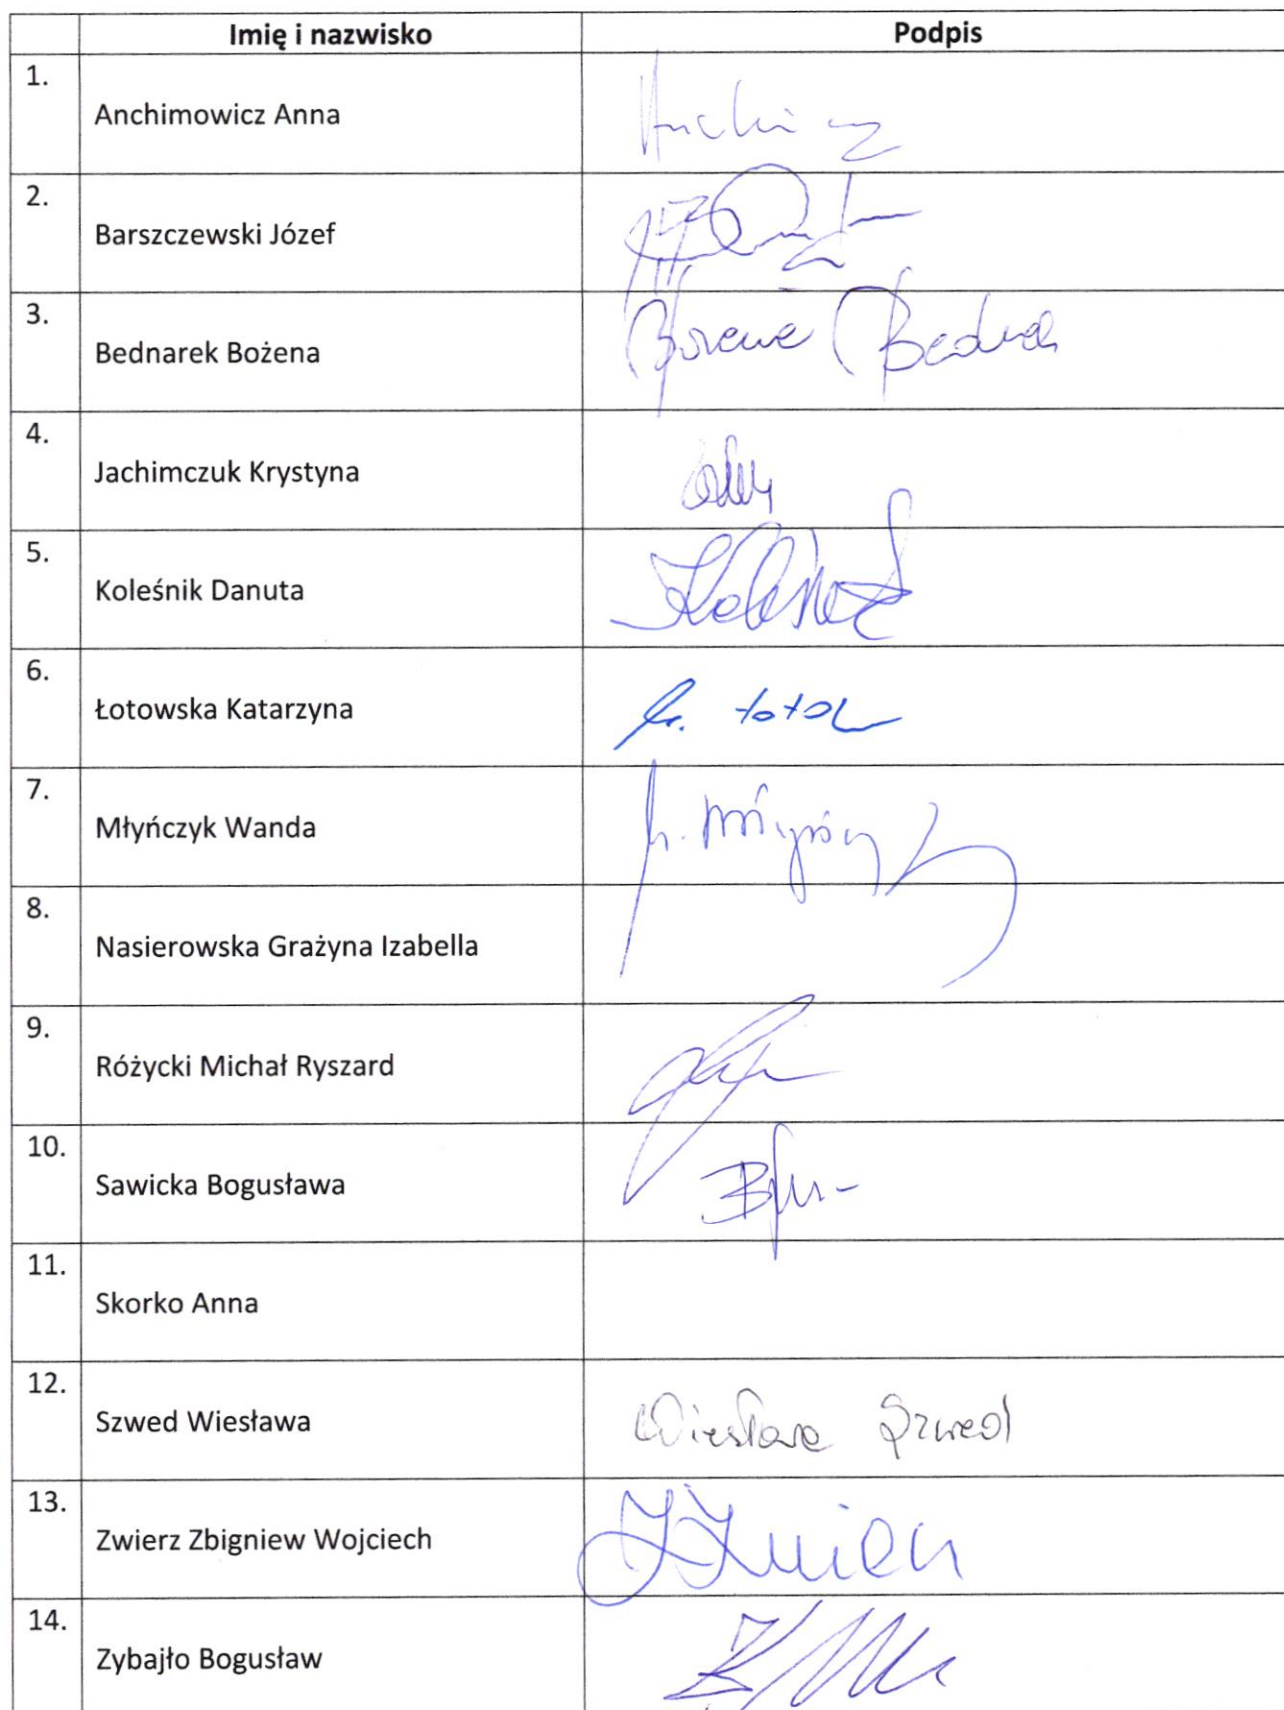 Imię i nazwisko Podpis
1. Anchimowicz Anna
2. Barszczewski Józef
3. Bednarek Bożena Bożena
4. Jachimczuk Krystyna
5. Koleśnik Danuta
6. Łotowska Katarzyna
7. Młyńczyk Wanda
8. Nasierowska Grażyna Izabella
9. Różycki Michał Ryszard
10. Sawicka Bogusława
11. Skorko Anna
12. Szwed Wiesława Wiesława Szwed
13. Zwierz Zbigniew Wojciech
14. Zybajło Bogusław